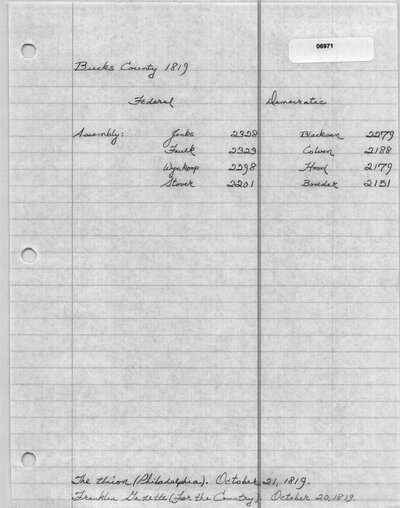 06971
Bucks County 1819
Federal Democratic
Assembly: Jenks 2328 Blackson 2279
Faulk 2323 Colven 2188
Wynkoop 2298 Hood 2179
Stover 2201 2151
The Union (Philadelphia). October 21, 1819.
Franklin Gazette (for the Country). October 20, 1819.